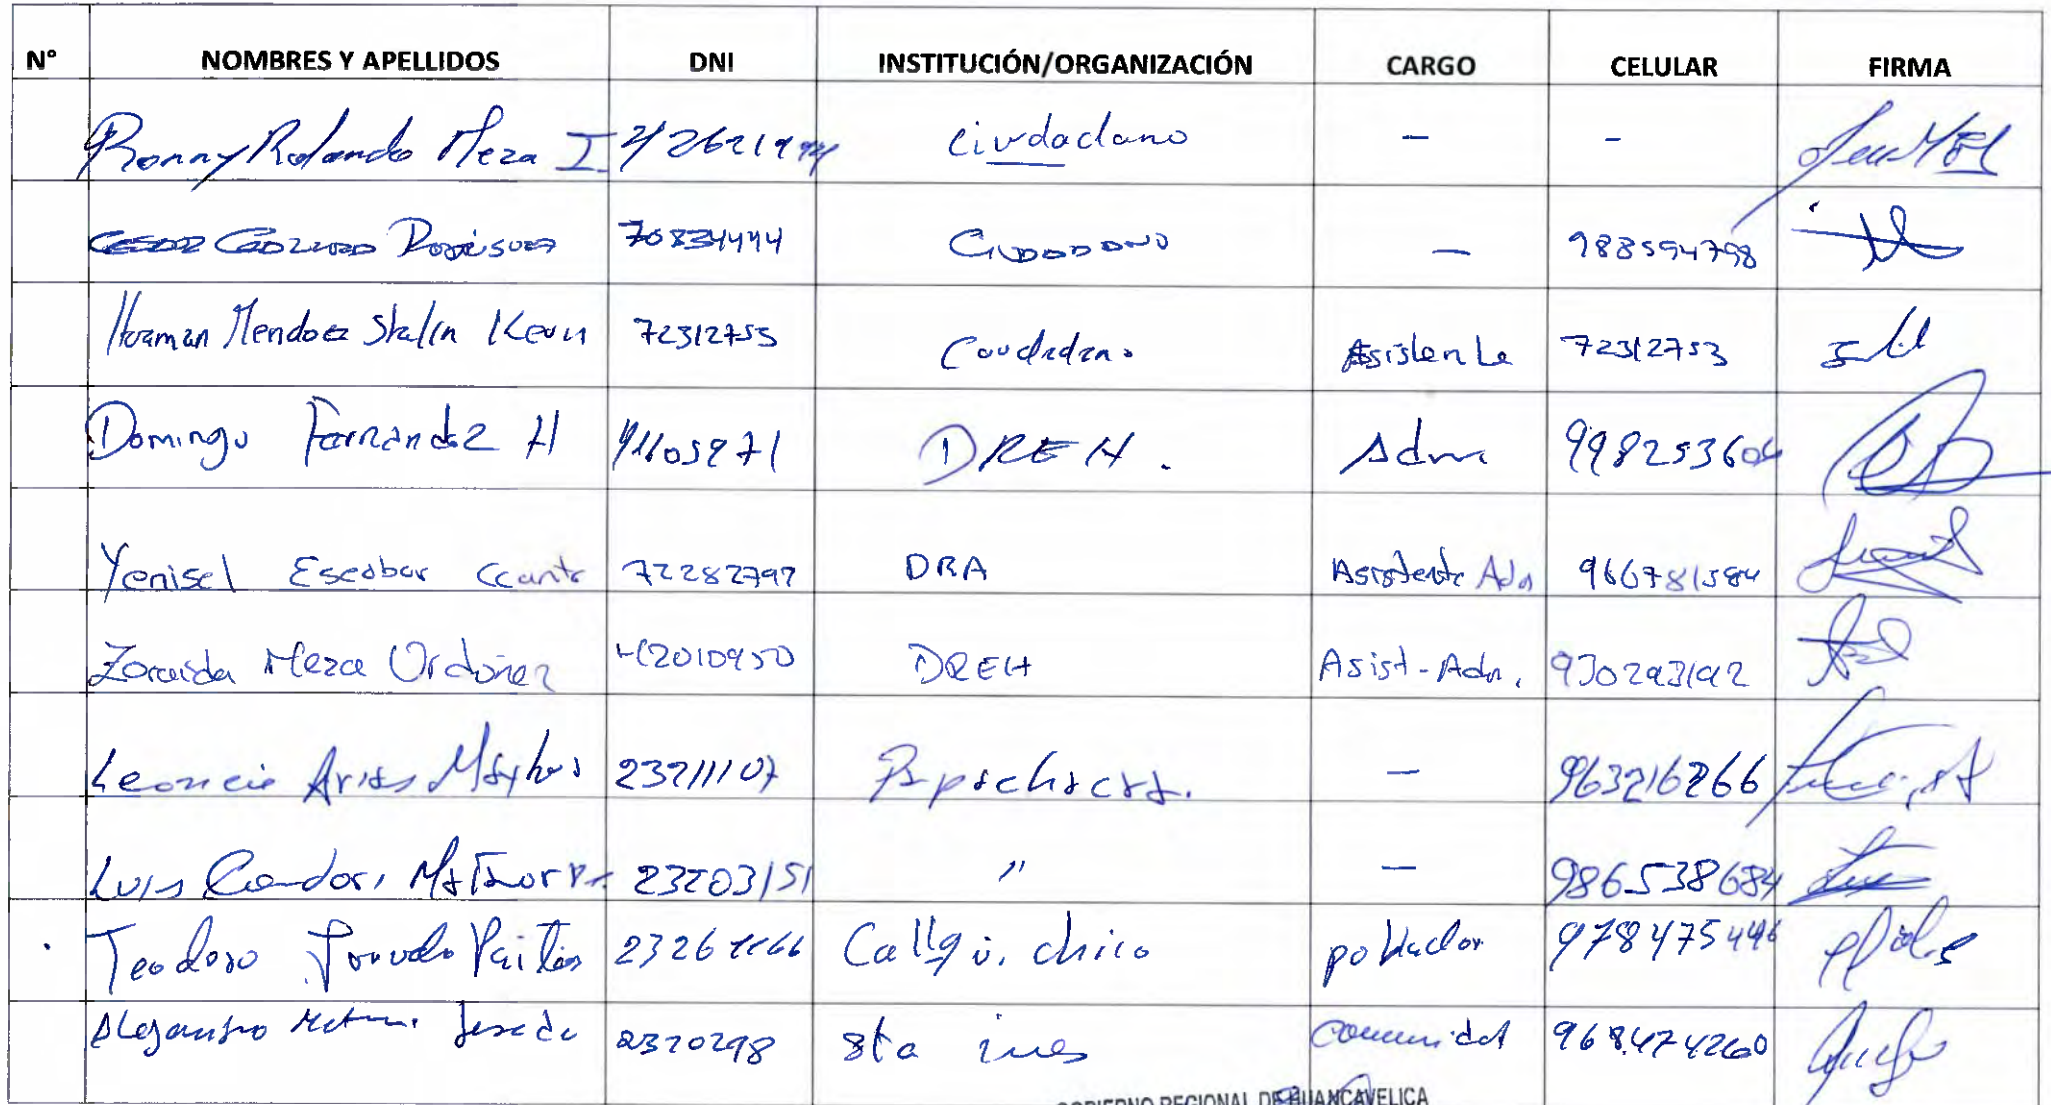 N° NOMBRES Y APELLIDOS DNI INSTITUCIÓN/ORGANIZACIÓN CARGO CELULAR FIRMA
Ronny Rolando Meza I ciudadano - -
Cesar 70834444 Ciudadano - 983594798
Huaman Mendoza Stalin Kevin 72312753 Asistente 72312753
Domingo Fernandez H 41105971 DREH. Adm 998253604
Yenisel Escobar Ccanto 72282797 DRA Asistente Adm 966781584
Zoraida Meza Ordoñez 42010950 DREH Asist-Adm. 930293192
Leoncio Arias 23211107 - 963216266
Luis Condori 23203151 " - 986538684
Teodoro 23261166 Callqui chico poblador 978475446
Alejandro 2320298 sta ines comunidad 968474260
GOBIERNO REGIONAL DE HUANCAVELICA